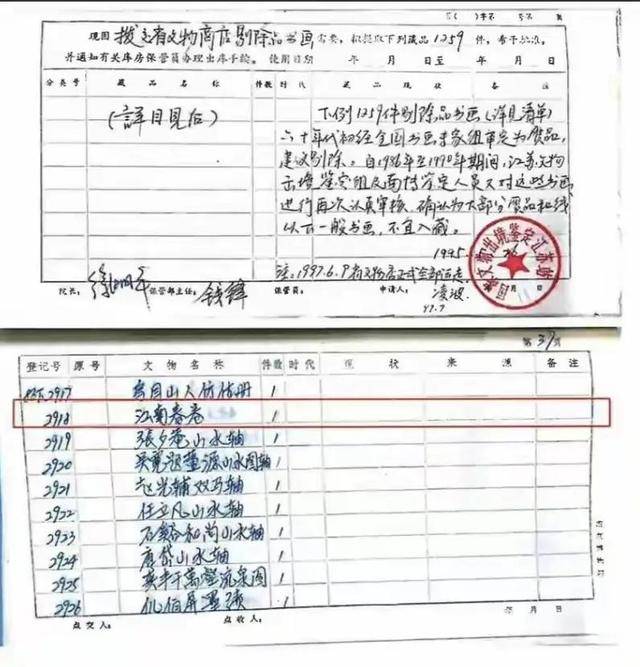 现因 拨交省文物商店剔除品书画 需要，拟提取下列藏品 1259 件，希予批准，
并通知有关库房保管员办理出库手续。使用日期 年 月 日至 年 月 日
分类号 藏品名称 件数 时代 藏品现状
（详目见后）
下列1259件剔除品书画（详见清单）
六十年代初经全国书画专家组审定为赝品，
建议剔除。自1986年至1990年期间，江苏文物
出境鉴定组及南博鉴定人员又对这些书画
进行再次认真审核，确认为大部分赝品和
以下一般书画，不宜入藏。
1995
注：1997.6.9
院长： 保管部主任：钱锋 保管员： 申请人：凌波
97.7
文物出境鉴定江苏
第 37 页
登记号 原号 文物名称 件数 时代 现状 来源 备注
2917 山人仿古册 1
2918 江南春卷 1
2919 张夕庵山水轴 1
2920 吴宽题 山水图轴 1
2921 赵光辅双马轴 1
2922 任立凡山水轴 1
2923 石谿和尚山水轴 1
2924 唐岱山水轴 1
2925 流泉图 1
2926 倪伯屏 1
点交人： 点收人： 年 月 日